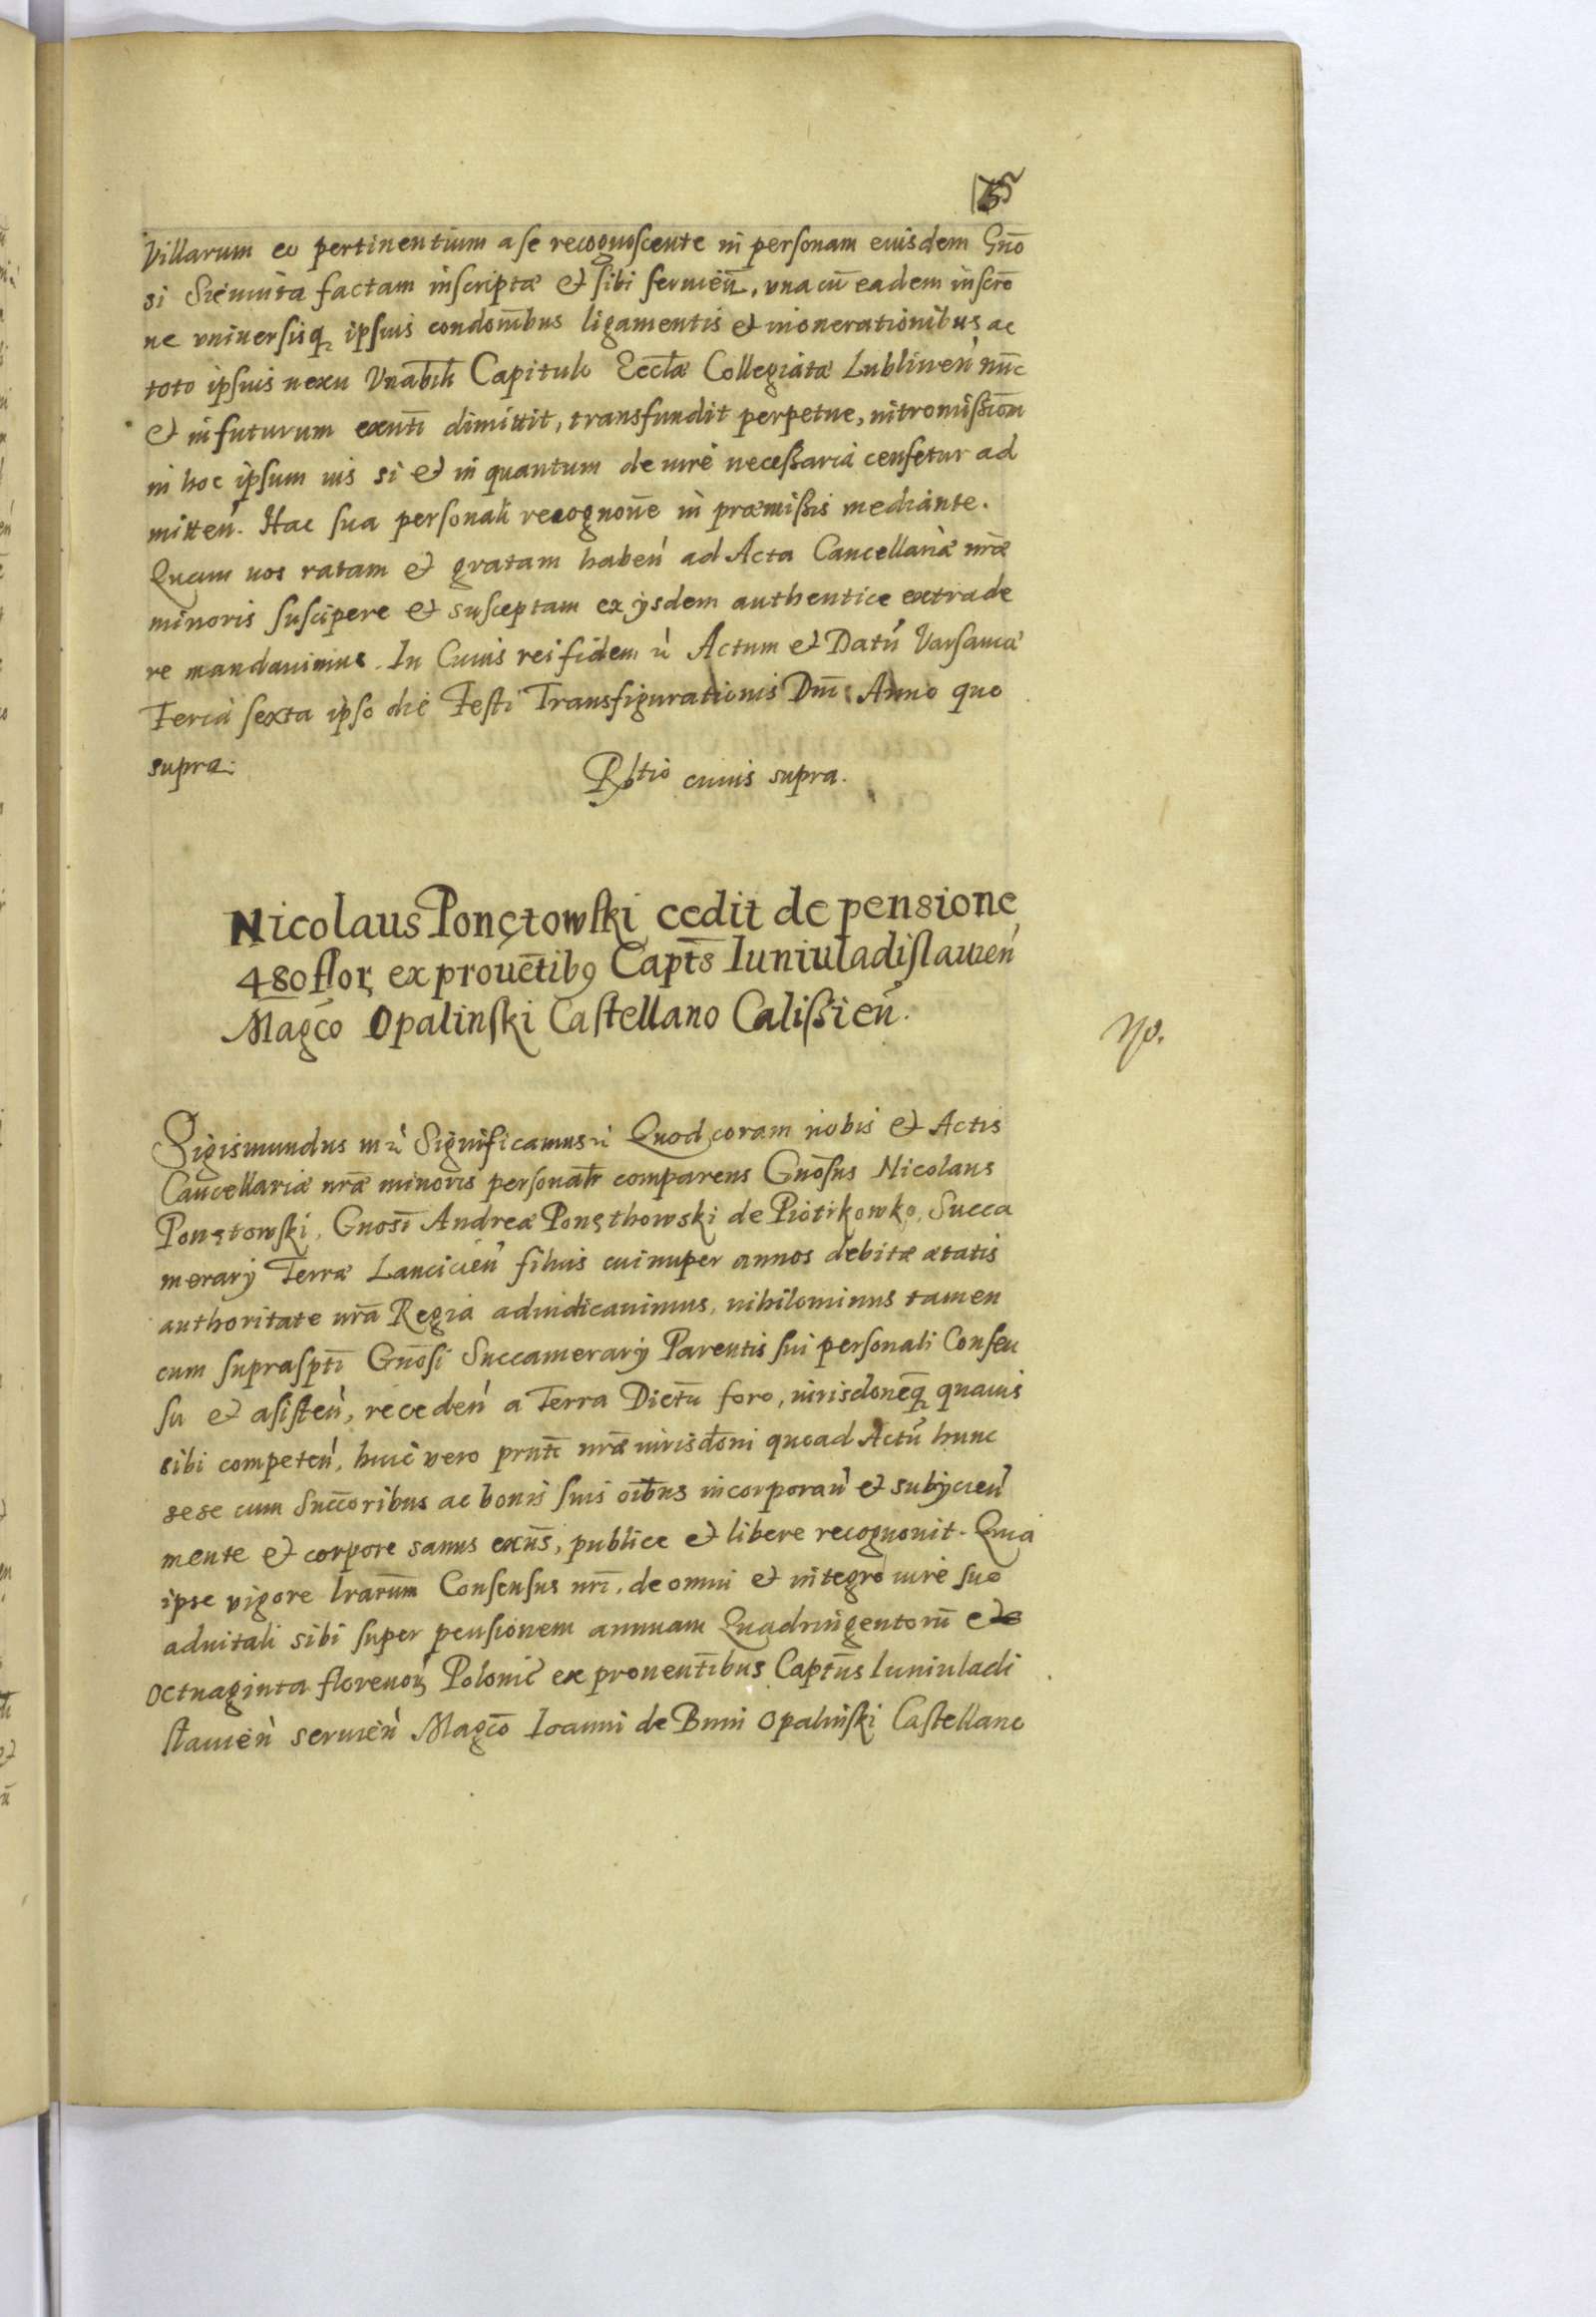 Villarum eo pertinentium a se recognoscente in personam eiusdem Gn̄o
si Sienuta factam inscriptæ et sibi seruień, vna cū eadem inscrō
ne vniuersisq ipsius condom̄bus ligamentis et inonerationibus ac
toto ipsius nexu Vnabili Capitulo Eccl̄æ Collegiatæ Lublineń nūc
et in futurum exn̄ti dimittit, transfundit perpetue, intromissiōn
in hoc ipsum ius si et in quantum de iure necessaria censetur ad
mitteń. Hac sua personali recognoñe in præmissis mediante.
Quam nos ratam et gratam habeń ad Acta Cancellariæ nr̄æ
minoris suscipere et susceptam ex ijsdem authentice extrade
re mandauimus. In Cuius rei fidem ń Actum et Datū Varsauiæ
Feria sexta ipso die Festi Transfigurationis Dn̄i Anno quo
supra.
Rl̄tio cuius supra.
Nicolaus Ponętowski cedit de pensione
480 flor ex prouētib9 Capt̄s Iuniuladislauień
Magc̄o Opalinski Castellano Calissień.
No.
Sigismundus mń Significamus ń Quod coram nobis et Actis
Cancellariæ nr̄æ minoris personalr comparens Gnōsus Nicolaus
Ponętowski, Gnosī Andreæ Ponęthowski de Piotrkowko, Succa
merarij Terræ Lancicień filius cui nuper annos debitæ ætatis
authoritate nr̄a Regia adiudicauimus, nihilominus tamen
cum suprasptī Gnōsi Succamerarij Parentis sui personali Consen
su et asisteń, recedeń a Terra Dictū foro, iurisdoneq̄ quauis
sibi competeń, huic vero prn̄ti nr̄æ iurisdoni quoad Actū hunc
sese cum Succ̄oribus ac bonis suis oībus incorporań et subijcień
mente et corpore sanus exūs, publice et libere recognouit. Quia
ipse vigore lrarūm Consensus nrī, de omni et integro iure suo
aduitali sibi super pensionem annuam Quadringentorū et
Octuaginta florenoȓ Polonic̄ ex prouentībus Captūs Iuniuladi
slauień seruień Magc̄o Ioanni de Bnin Opalinski Castellano